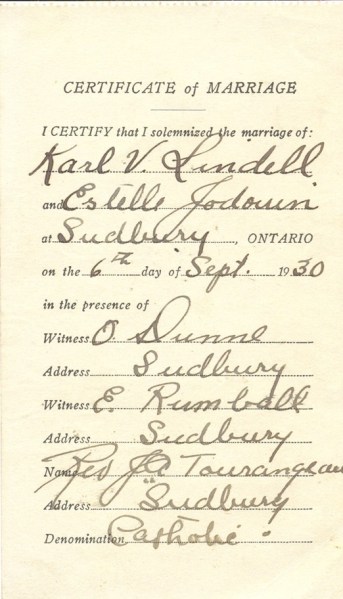 CERTIFICATE of MARRIAGE
I CERTIFY that I solemnized the marriage of:
Karl V. Lindell
and Estelle Jodouin
at Sudbury, ONTARIO
on the 6th day of Sept. 1930
in the presence of
Witness O. Dunne
Address Sudbury
Witness E. Rumball
Address Sudbury
Name Rev J A Tourangeau
Address " Sudbury
Denomination Catholic